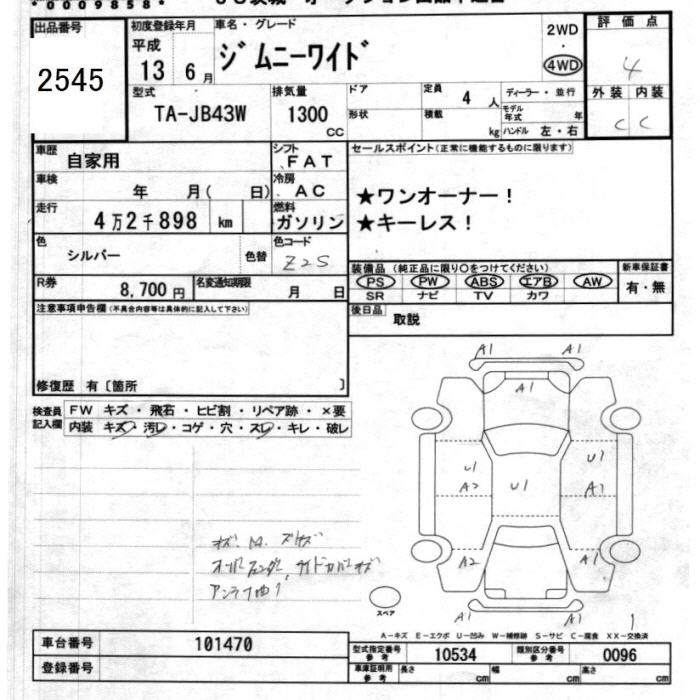 *0009858*
出品番号 初度登録年月 車名・グレード 2WD 評価点
2545 平成 13 6月 ジムニーワイド ・ 4WD 4
型式 排気量 ドア 定員 ディーラー・並行 外装 内装
TA-JB43W 1300 CC 形状 積載 4人 kg モデル年式 年 ハンドル 左・右 C C
車歴 自家用 シフト FAT セールスポイント(正常に機能するものに限ります)
車検 年 月( 日) 冷房 AC ★ワンオーナー!
走行 4万2千898 km 燃料 ガソリン ★キーレス!
色 シルバー 色替 色コード Z2S
装備品(純正品に限り○をつけてください) 新車保証書
R券 8,700円 名変通知期限 月 日 PS PW ABS エアB AW 有・無
SR ナビ TV カワ
注意事項申告欄(不具合内容等は具体的に記入して下さい) 後日品 取説
修復歴 有〔箇所 〕
検査員記入欄 FW キズ・飛石・ヒビ割・リペア跡・×要
内装 キズ・汚レ・コゲ・穴・スレ・キレ・破レ
A1 A1
A1
U1 U1
A2 U1 A1
A2 A1
A1 A1
スペア
A-キズ E-エクボ U-凹み W-補修跡 S-サビ C-腐食 XX-交換済
車台番号 101470 型式指定番号 参考 10534 類別区分番号 参考 0096
登録番号 車庫証明用 参考 長さ cm 幅 cm 高さ cm